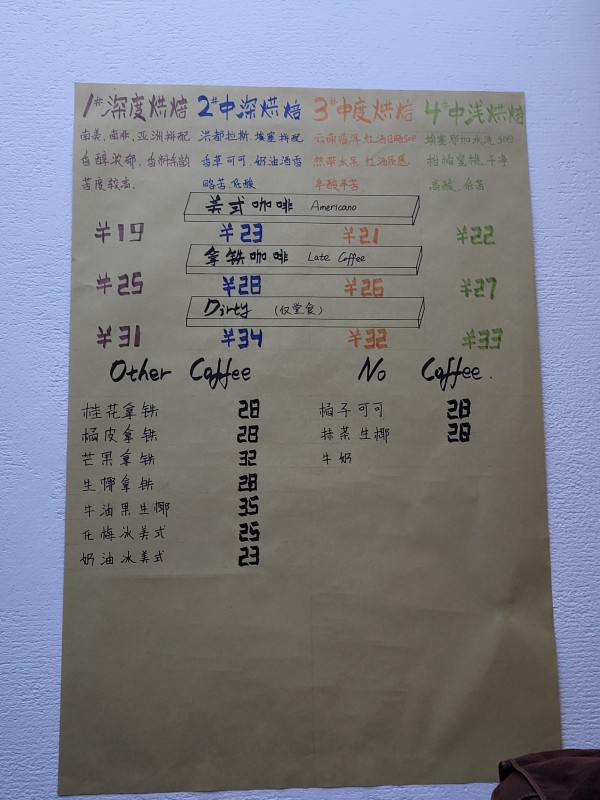 1# 深度烘焙 2# 中深烘焙 3# 中度烘焙 4# 中浅烘焙
南美、南非、亚洲拼配 洪都拉斯、埃塞拼配 云南 红酒日晒SOE 埃塞耶加水洗SOE
香醇浓郁、香料余韵 香草可可、奶油酒香 热带水果 红酒质感 柑橘蜜桃 干净
苦度较高 略苦、低酸 平酸平苦 高酸、低苦
美式咖啡 Americano
¥19 ¥23 ¥21 ¥22
拿铁咖啡 Late Coffee
¥25 ¥28 ¥26 ¥27
Dirty (仅堂食)
¥31 ¥34 ¥32 ¥33
Other Coffee No Coffee.
桂花拿铁 28 橘子可可 28
橘皮拿铁 28 抹茶生椰 28
芒果拿铁 32 牛奶
生椰拿铁 28
牛油果生椰 35
化梅冰美式 25
奶油冰美式 23